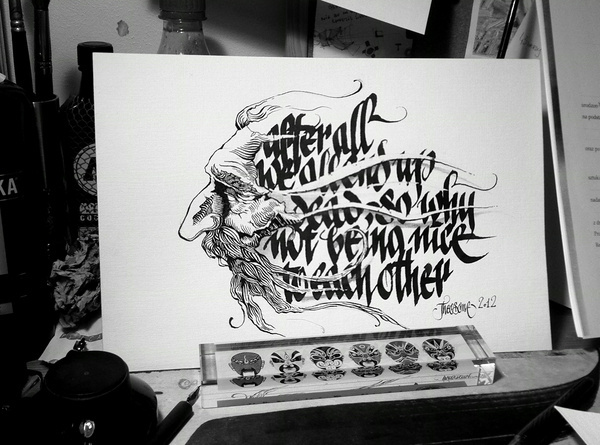 after all
we all end up
dead, so why
not being nice
to each other
2012